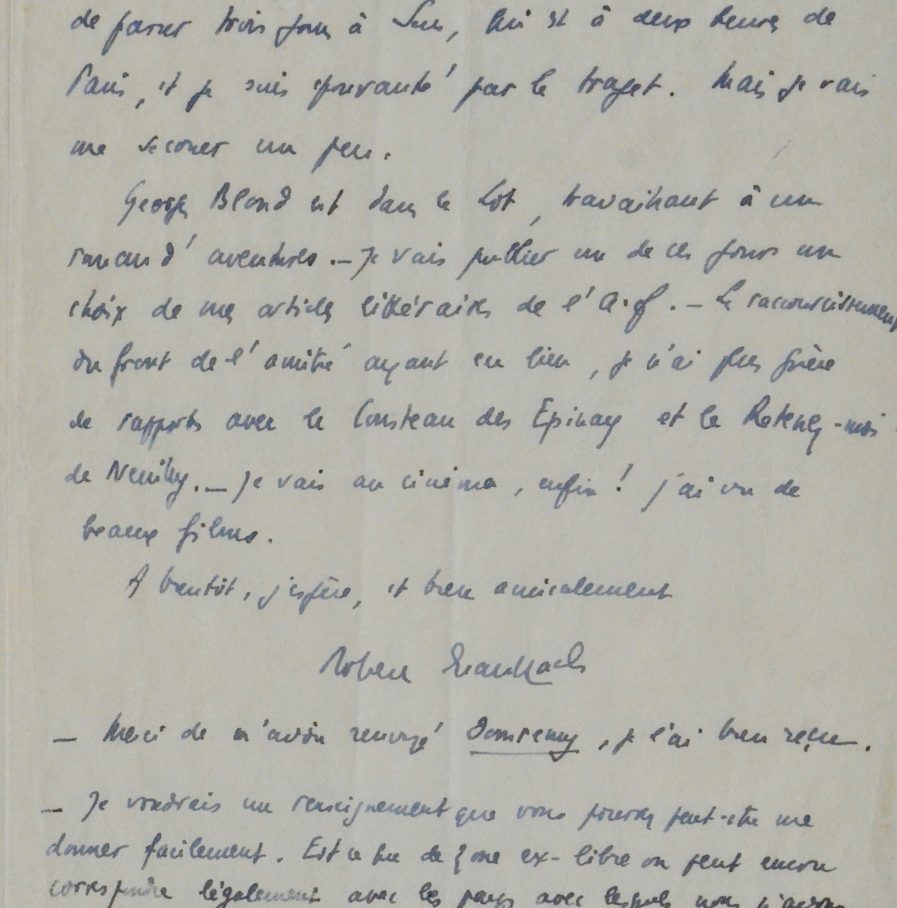 de passer trois jours à Sens, qui est à deux heures de
Paris, et je suis épouvanté par le trajet. Mais je vais
me secouer un peu.
Georges Blond est dans le Lot, travaillant à un
roman d'aventures. – Je vais publier un de ces jours un
choix de mes articles littéraires de l'A.f. – Le raccourcissement
du front de l'amitié ayant eu lieu, je n'ai plus guère
de rapports avec le Cousteau des Epinay et le
de Neuilly. – Je vais au cinéma, enfin ! j'ai vu de
beaux films.
A bientôt, j'espère, et bien amicalement
Robert Brasillach
– Merci de m'avoir renvoyé Domremy, je l'ai bien reçu.
– Je voudrais un renseignement que vous pourrez peut-être me
donner facilement. Est-ce que de zone ex-libre on peut encore
correspondre légalement avec les pays avec lesquels nous n'avons